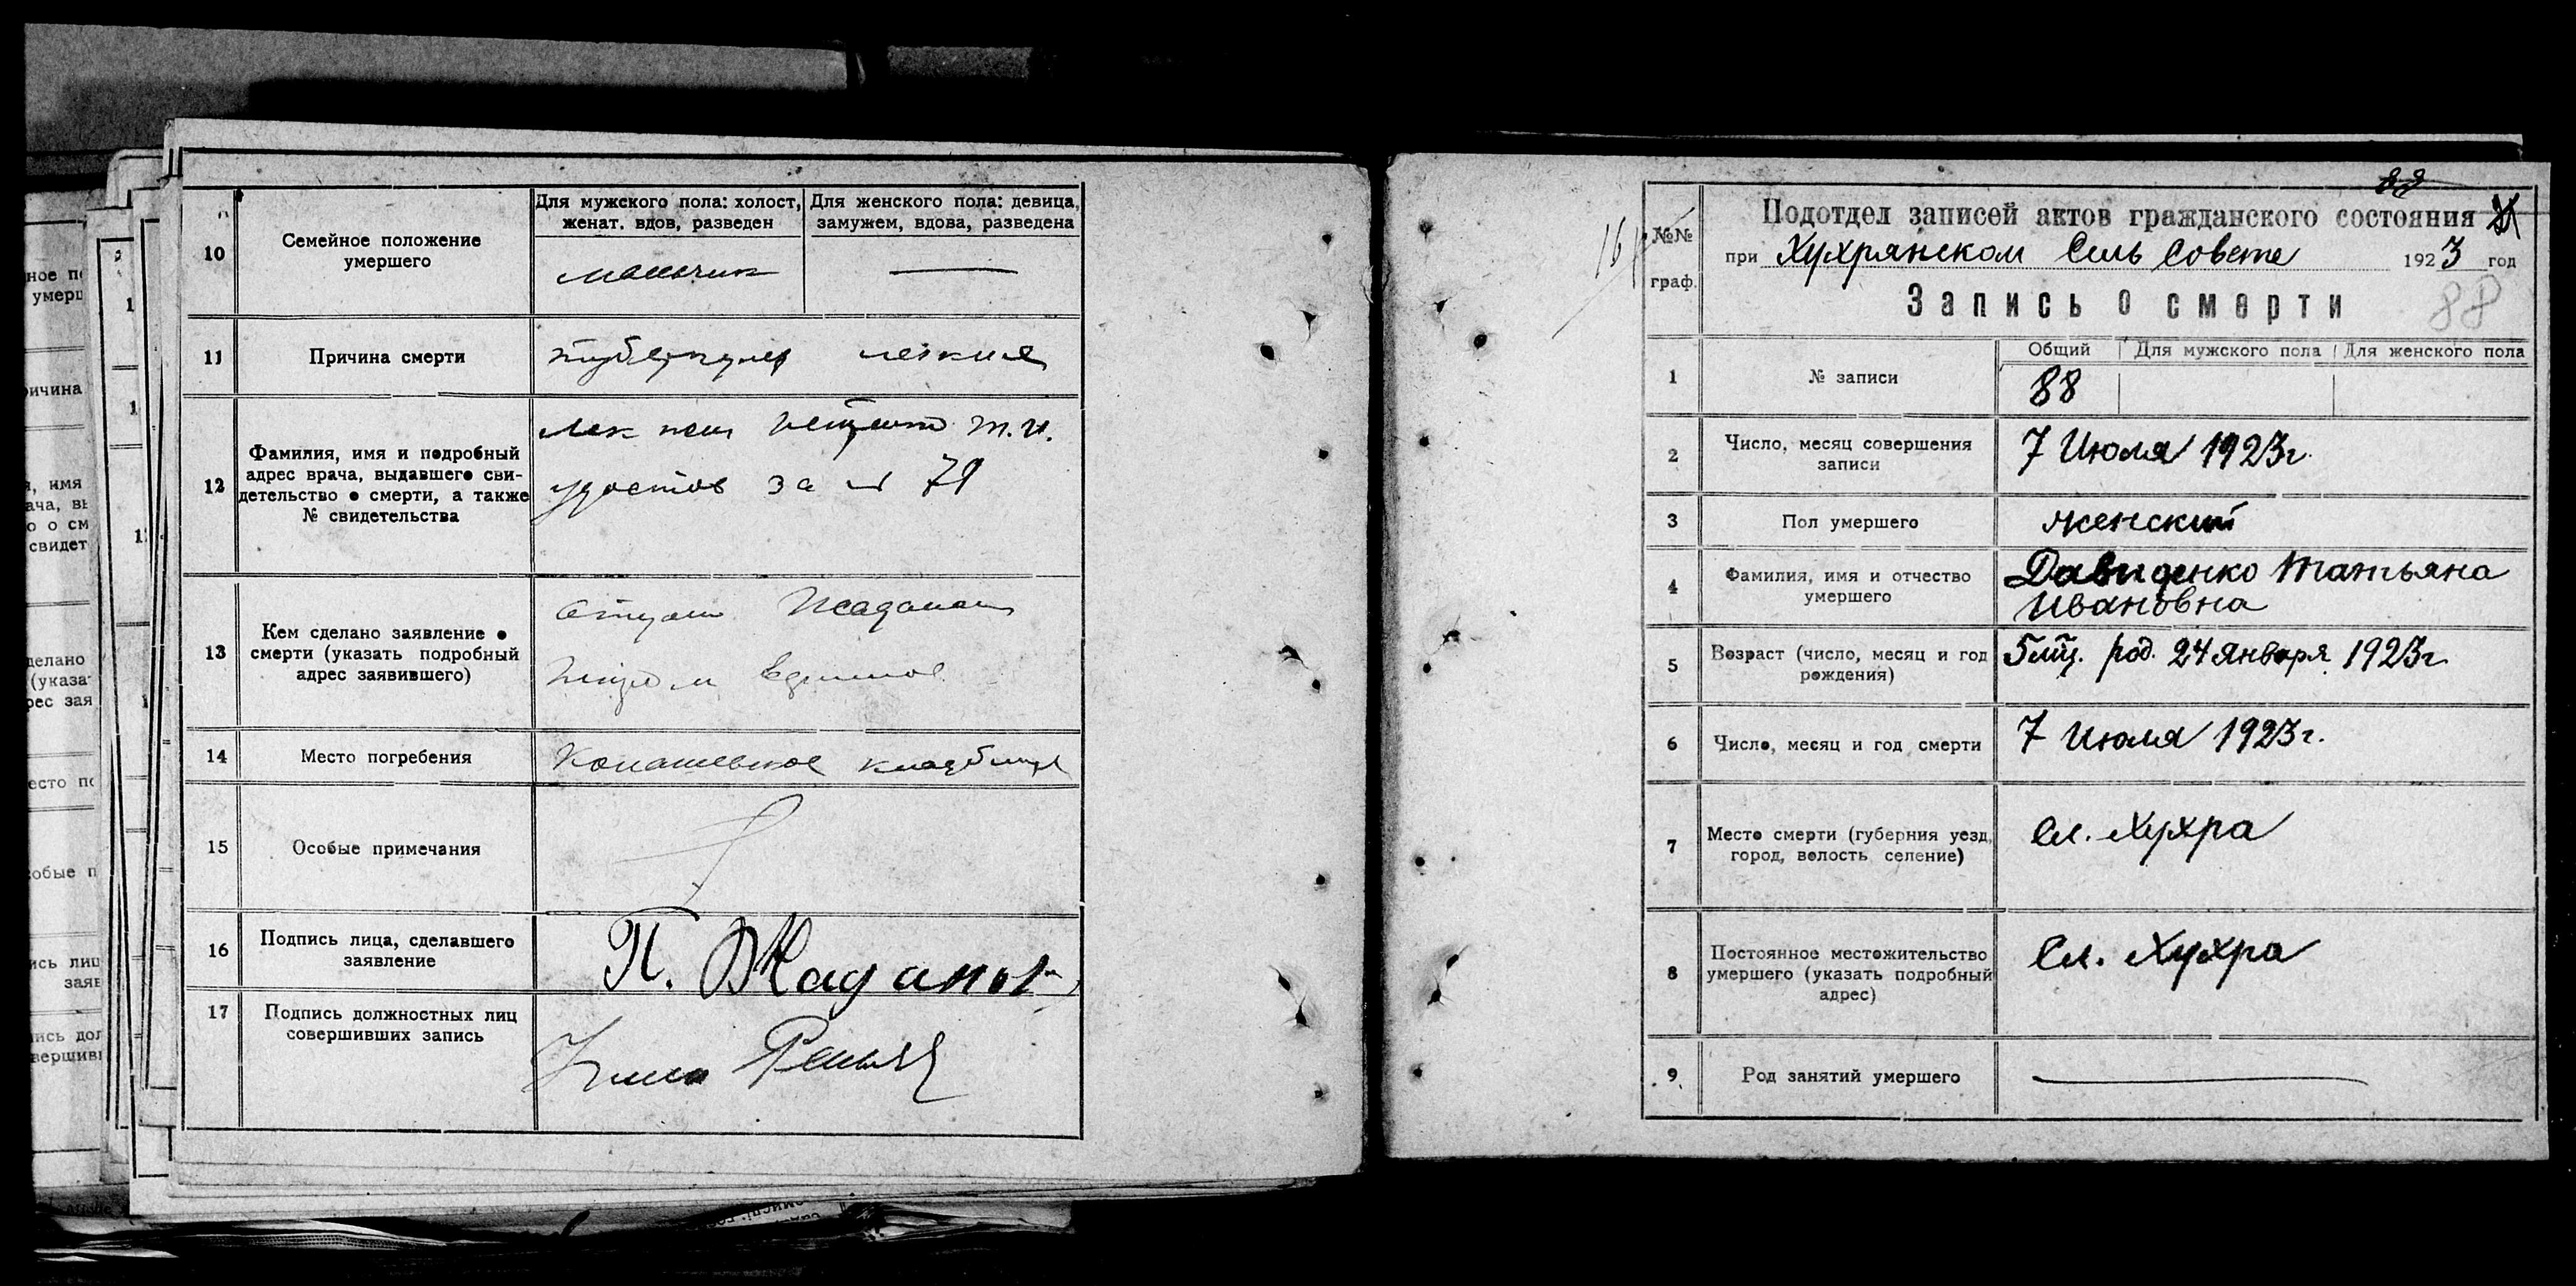 10
Семейное положение
умершего
Для мужского пола: холост,
женат. вдов, разведен
Для женского пола: девица,
замужем, вдова, разведена
мальчик
11
Причина смерти
туберкулез легких
12
Фамилия, имя и подробный
адрес врача, выдавшего сви-
детельство о смерти, а также
№ свидетельства
лек пом т. и.
удостов за № 79
13
Кем сделано заявление о
смерти (указать подробный
адрес заявившего)
отцом Жаданом
14
Место погребения
кладбище
15
Особые примечания
16
Подпись лица, сделавшего
заявление
П. Жадан
17
Подпись должностных лиц
совершивших запись
№№
граф.
88
Подотдел записей актов гражданского состояния
при Хухрянском Сель Совете 1923 год
Запись о смерти
88
1
№ записи
Общий
Для мужского пола
Для женского пола
88
2
Число, месяц совершения
записи
7 Июля 1923г.
3
Пол умершего
женский
4
Фамилия, имя и отчество
умершего
Давиденко Татьяна
Ивановна
5
Возраст (число, месяц и год
рождения)
5 мц. род. 24 января 1923г.
6
Число, месяц и год смерти
7 Июля 1923г.
7
Место смерти (губерния уезд,
город, волость селение)
Сл. Хухра
8
Постоянное местожительство
умершего (указать подробный
адрес)
Сл. Хухра
9
Род занятий умершего